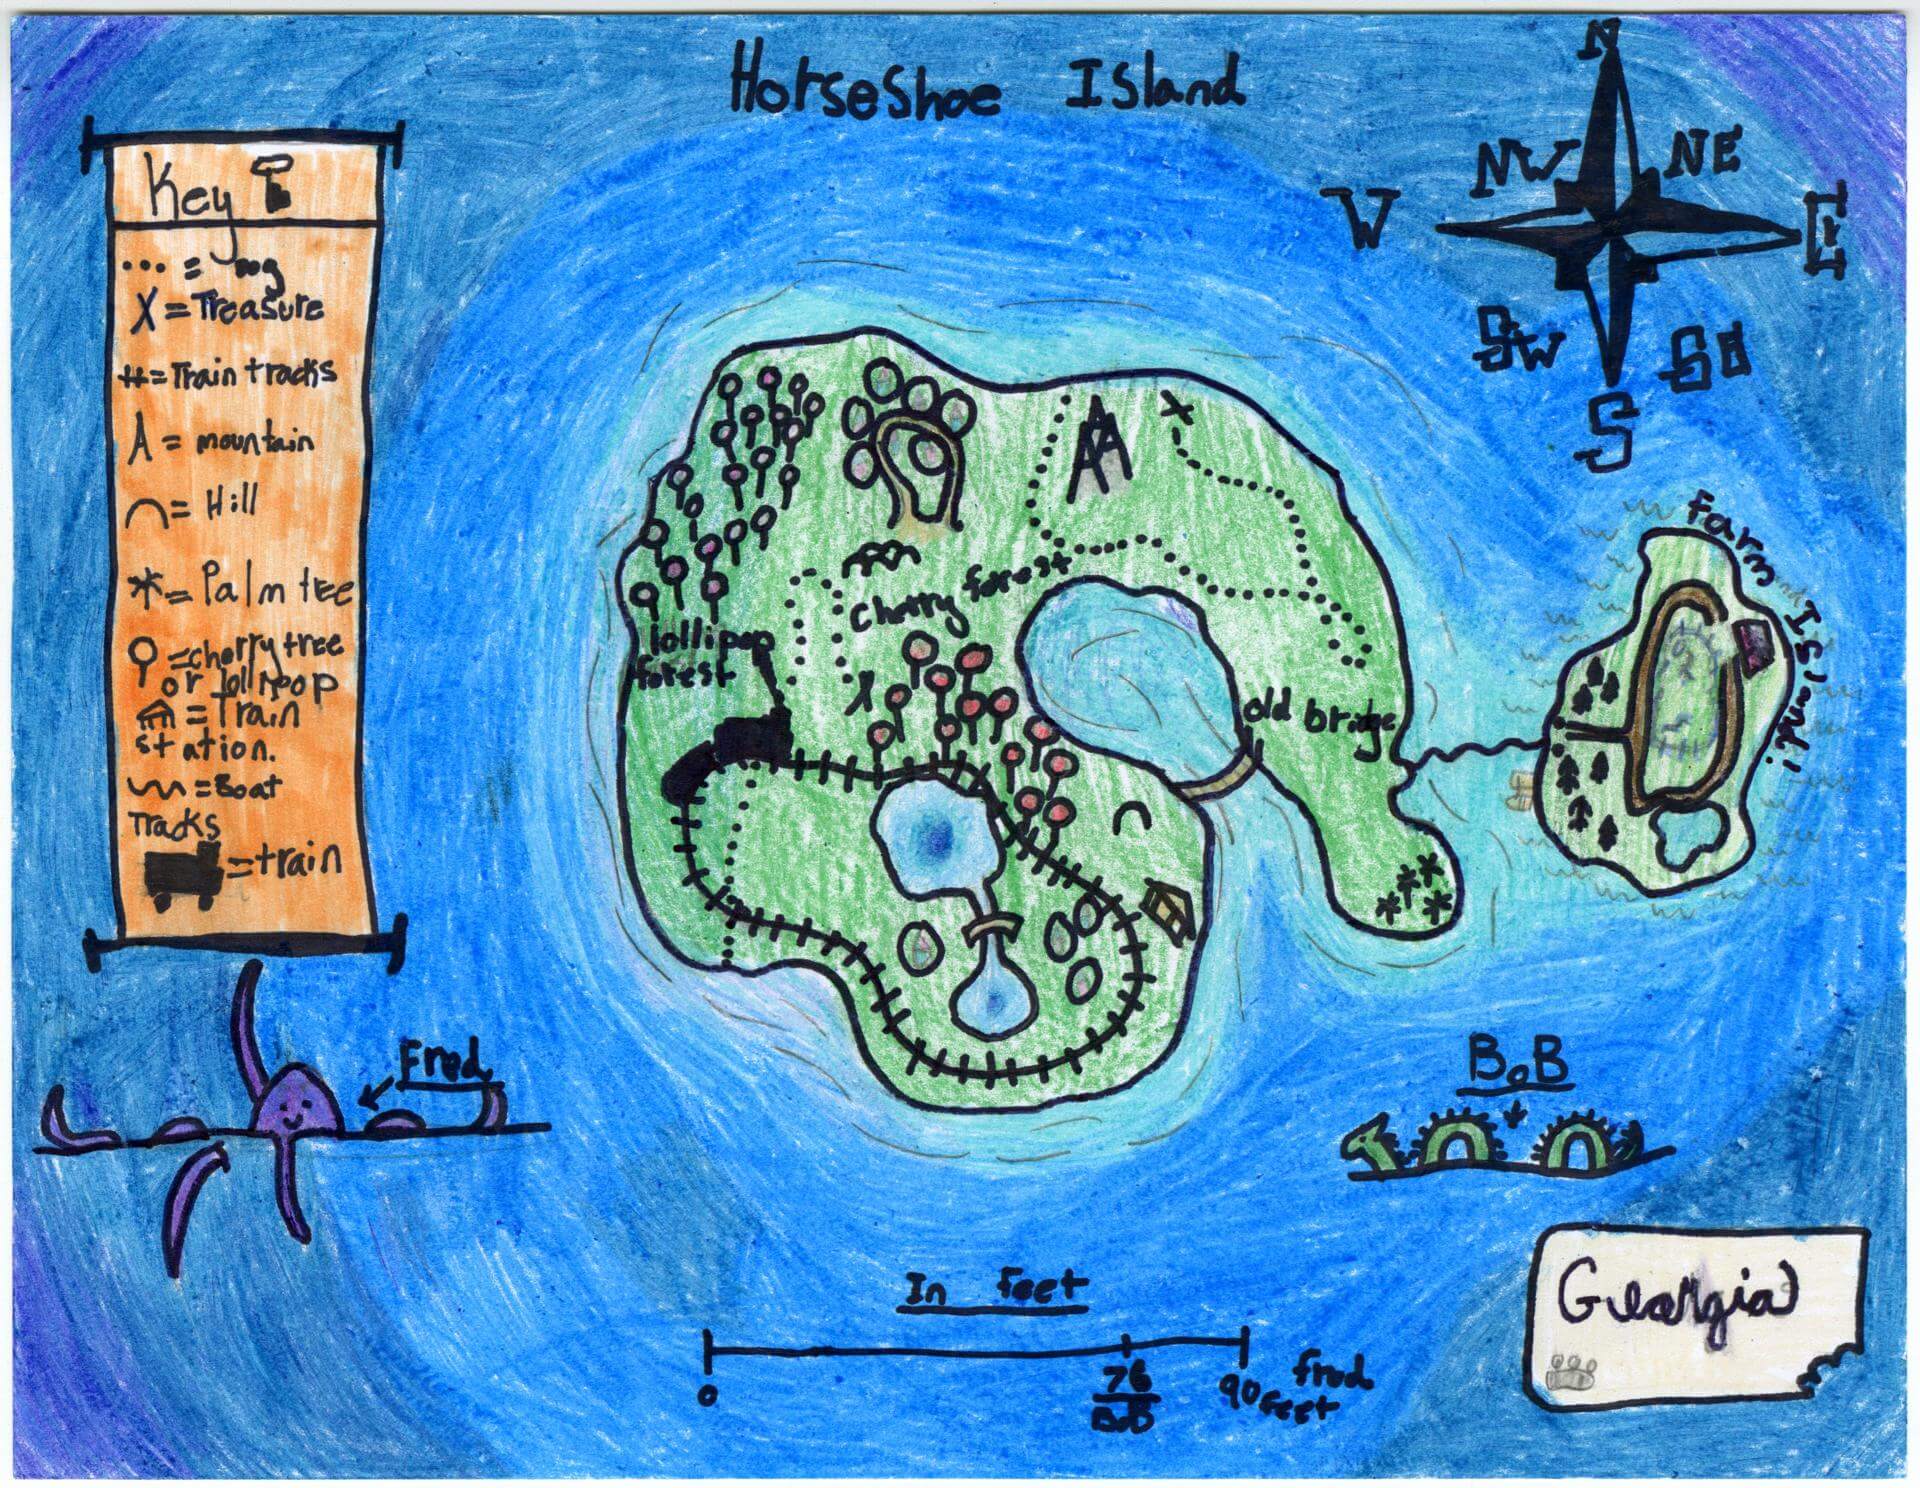 Horseshoe Island
N
NW
NE
W
E
SW
SE
S
Key
... =
X = Treasure
= Train tracks
= mountain
= Hill
= Palm tree
= cherry tree
or lollipop
= Train
station.
= Boat
Tracks
= train
Cherry forest
lollipop
forest
X
X
old bridge
farm Island!
Fred
BoB
In feet
0
76
BoB
90
feet
Fred
Georgia